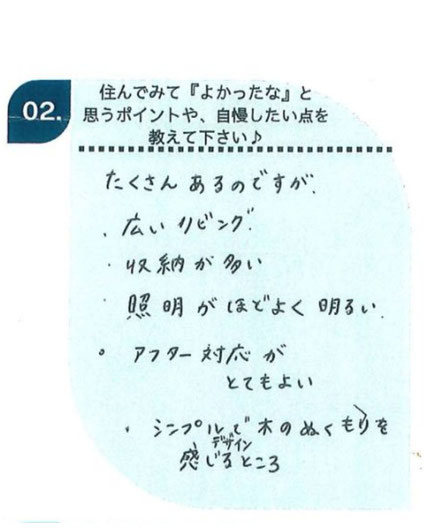 02.
住んでみて『よかったな』と
思うポイントや、自慢したい点を
教えて下さい♪
たくさんあるのですが、
・広いリビング
・収納が多い
・照明がほどよく明るい
。アフター対応が
とてもよい
・シンプルで木のぬくもりを
デザイン
感じるところ